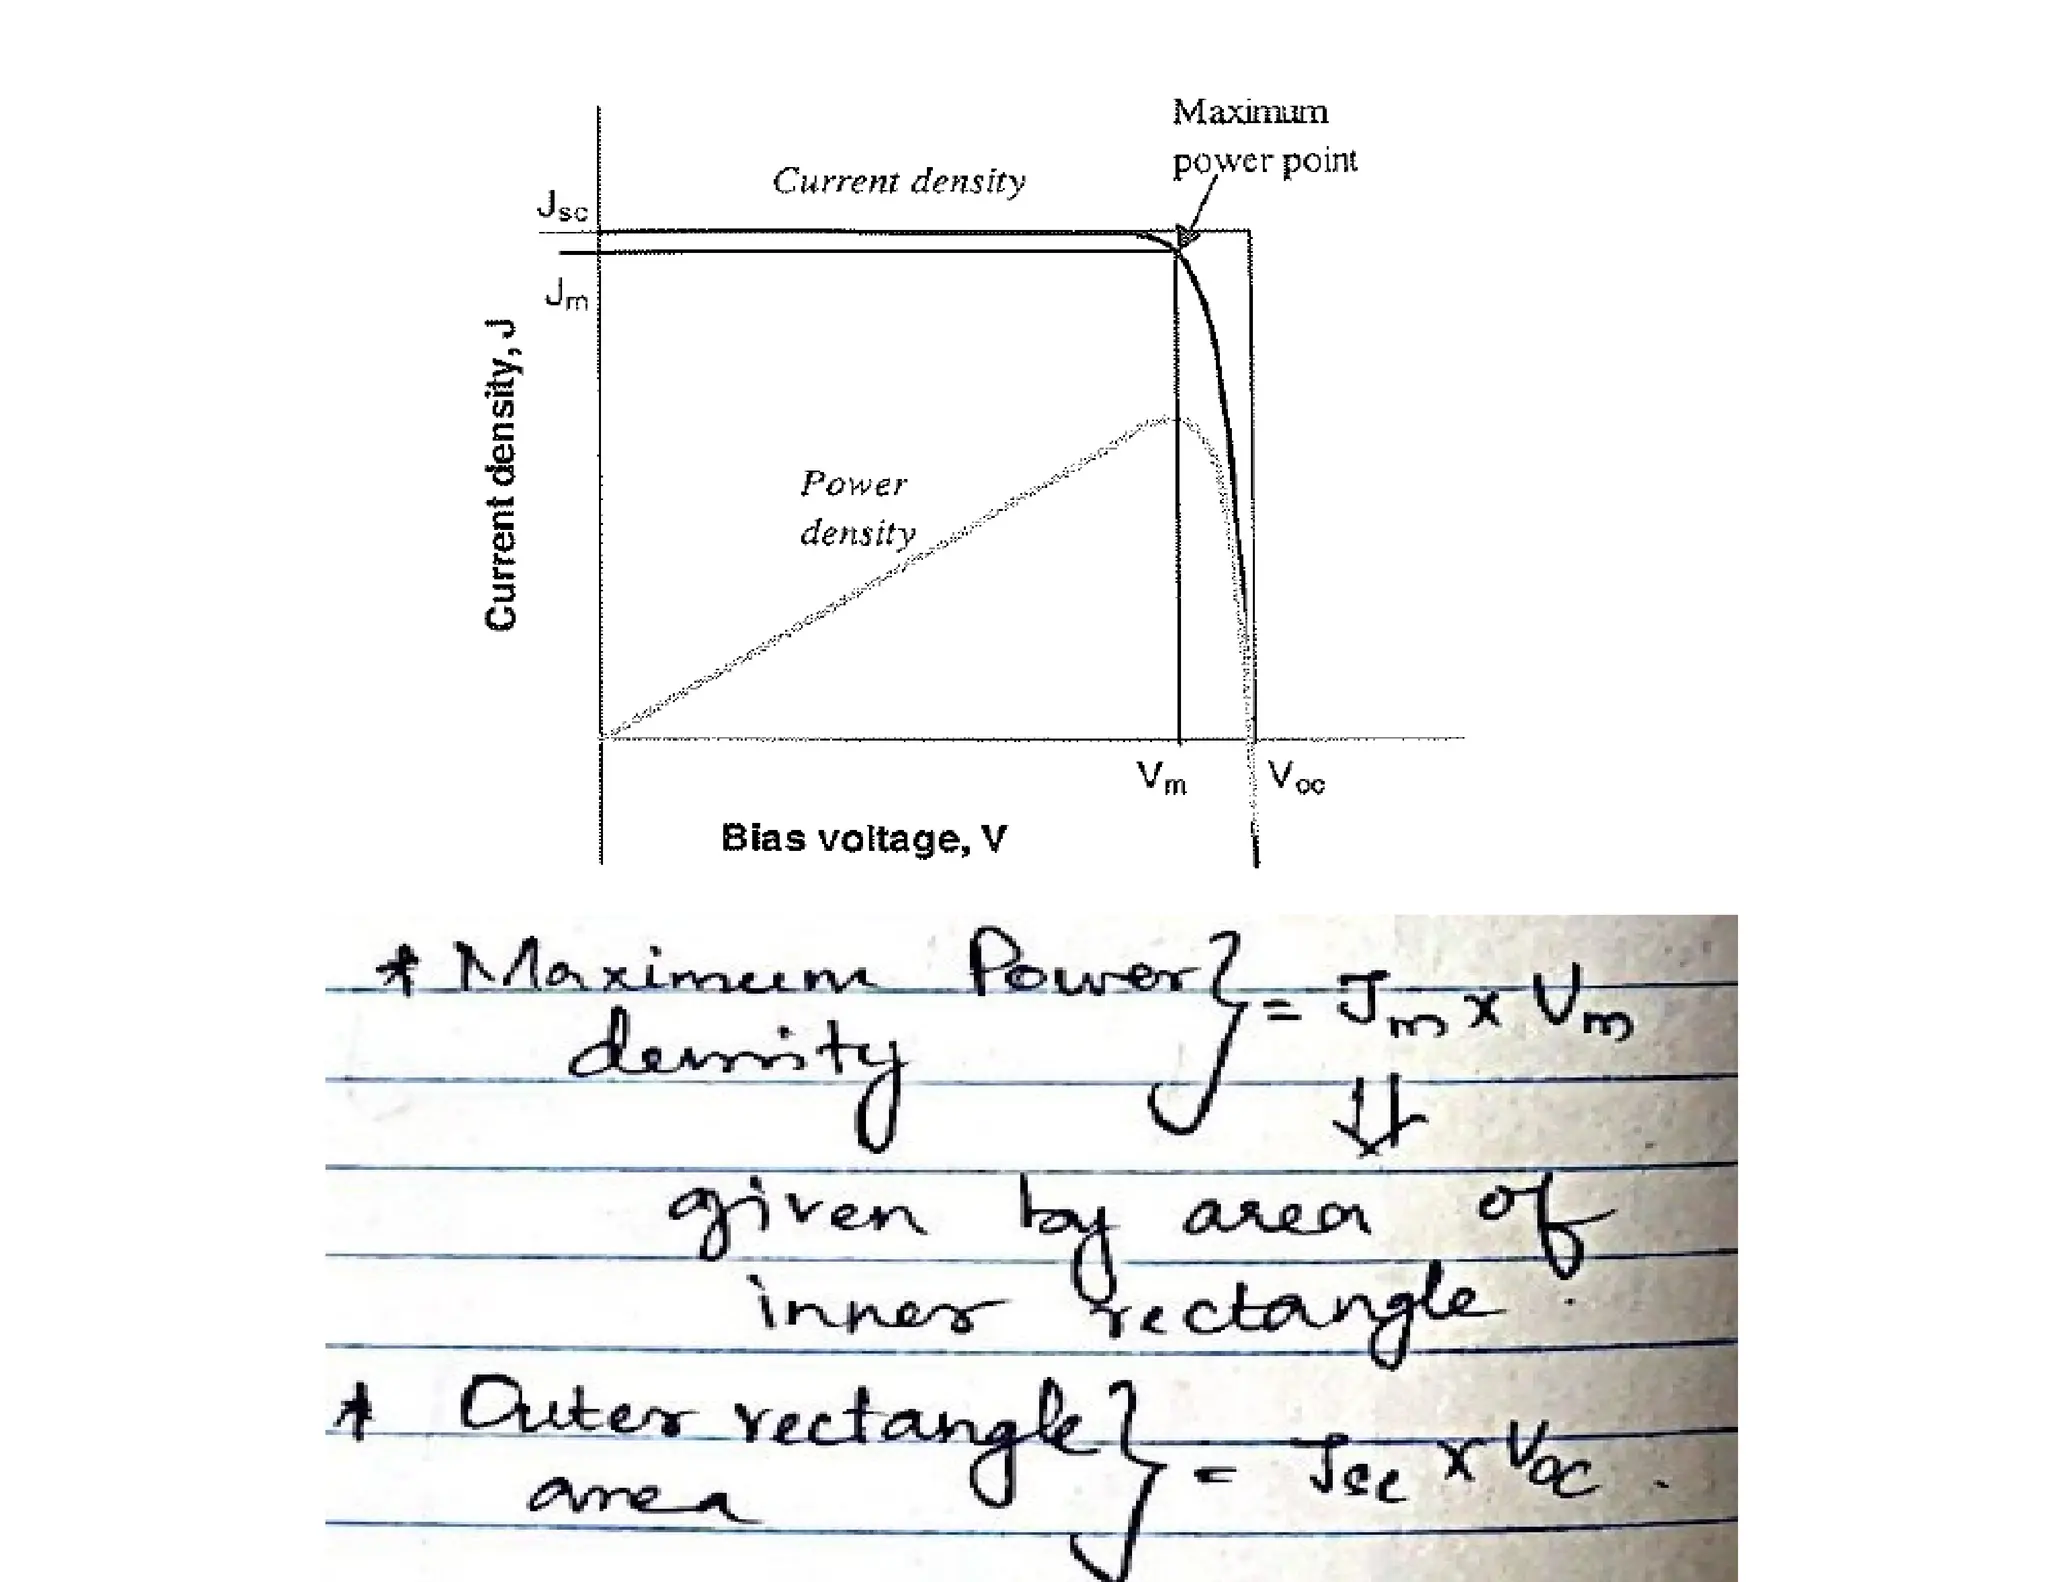 Maximum
power point
Current density
Jsc
Jm
Current density, J
Power
density
Vm
Voc
Bias voltage, V
* Maximum Power } = Jm x Vm
density
⇓
given by area of
inner rectangle.
* Outer rectangle } = Jsc x Voc.
area